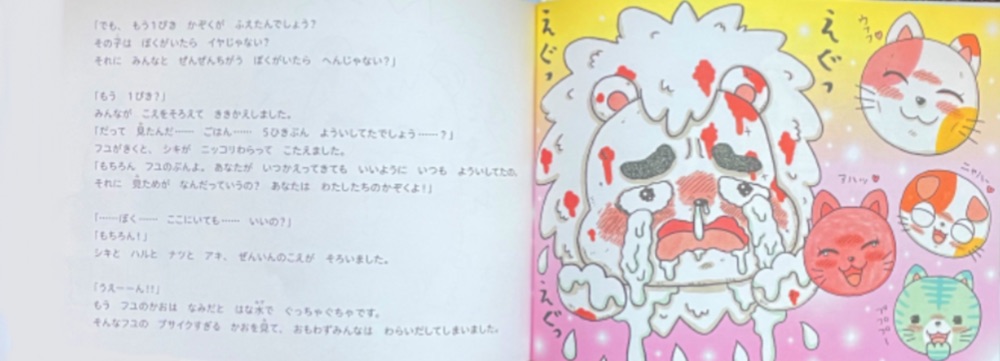 「でも、 もう1ぴき かぞくが ふえたんでしょう?
その子は ぼくがいたら イヤじゃない?
それに みんなと ぜんぜんちがう ぼくがいたら へんじゃない?」
「もう 1ぴき?」
みんなが こえをそろえて ききかえしました。
「だって 見たんだ…… ごはん…… 5ひきぶん よういしてたでしょう……?」
フユがきくと、 シキが ニッコリわらって こたえました。
「もちろん フユのぶんよ。 あなたが いつかえってきても いいように いつも よういしてたの。
それに 見ためが なんだっていうの? あなたは わたしたちのかぞくよ!」
「……ぼく…… ここにいても…… いいの?」
「もちろん!」
シキと ハルと ナツと アキ、 ぜんいんのこえが そろいました。
「うえーーん!!」
もう フユのかおは なみだと はな水で ぐっちゃぐちゃです。
そんなフユの ブサイクすぎる かおを見て、 おもわずみんなは わらいだしてしまいました。
えぐっ
えぐっ
えぐっ
えぐっ
ウフフ♥
アハハッ♥
ニャハハー♥